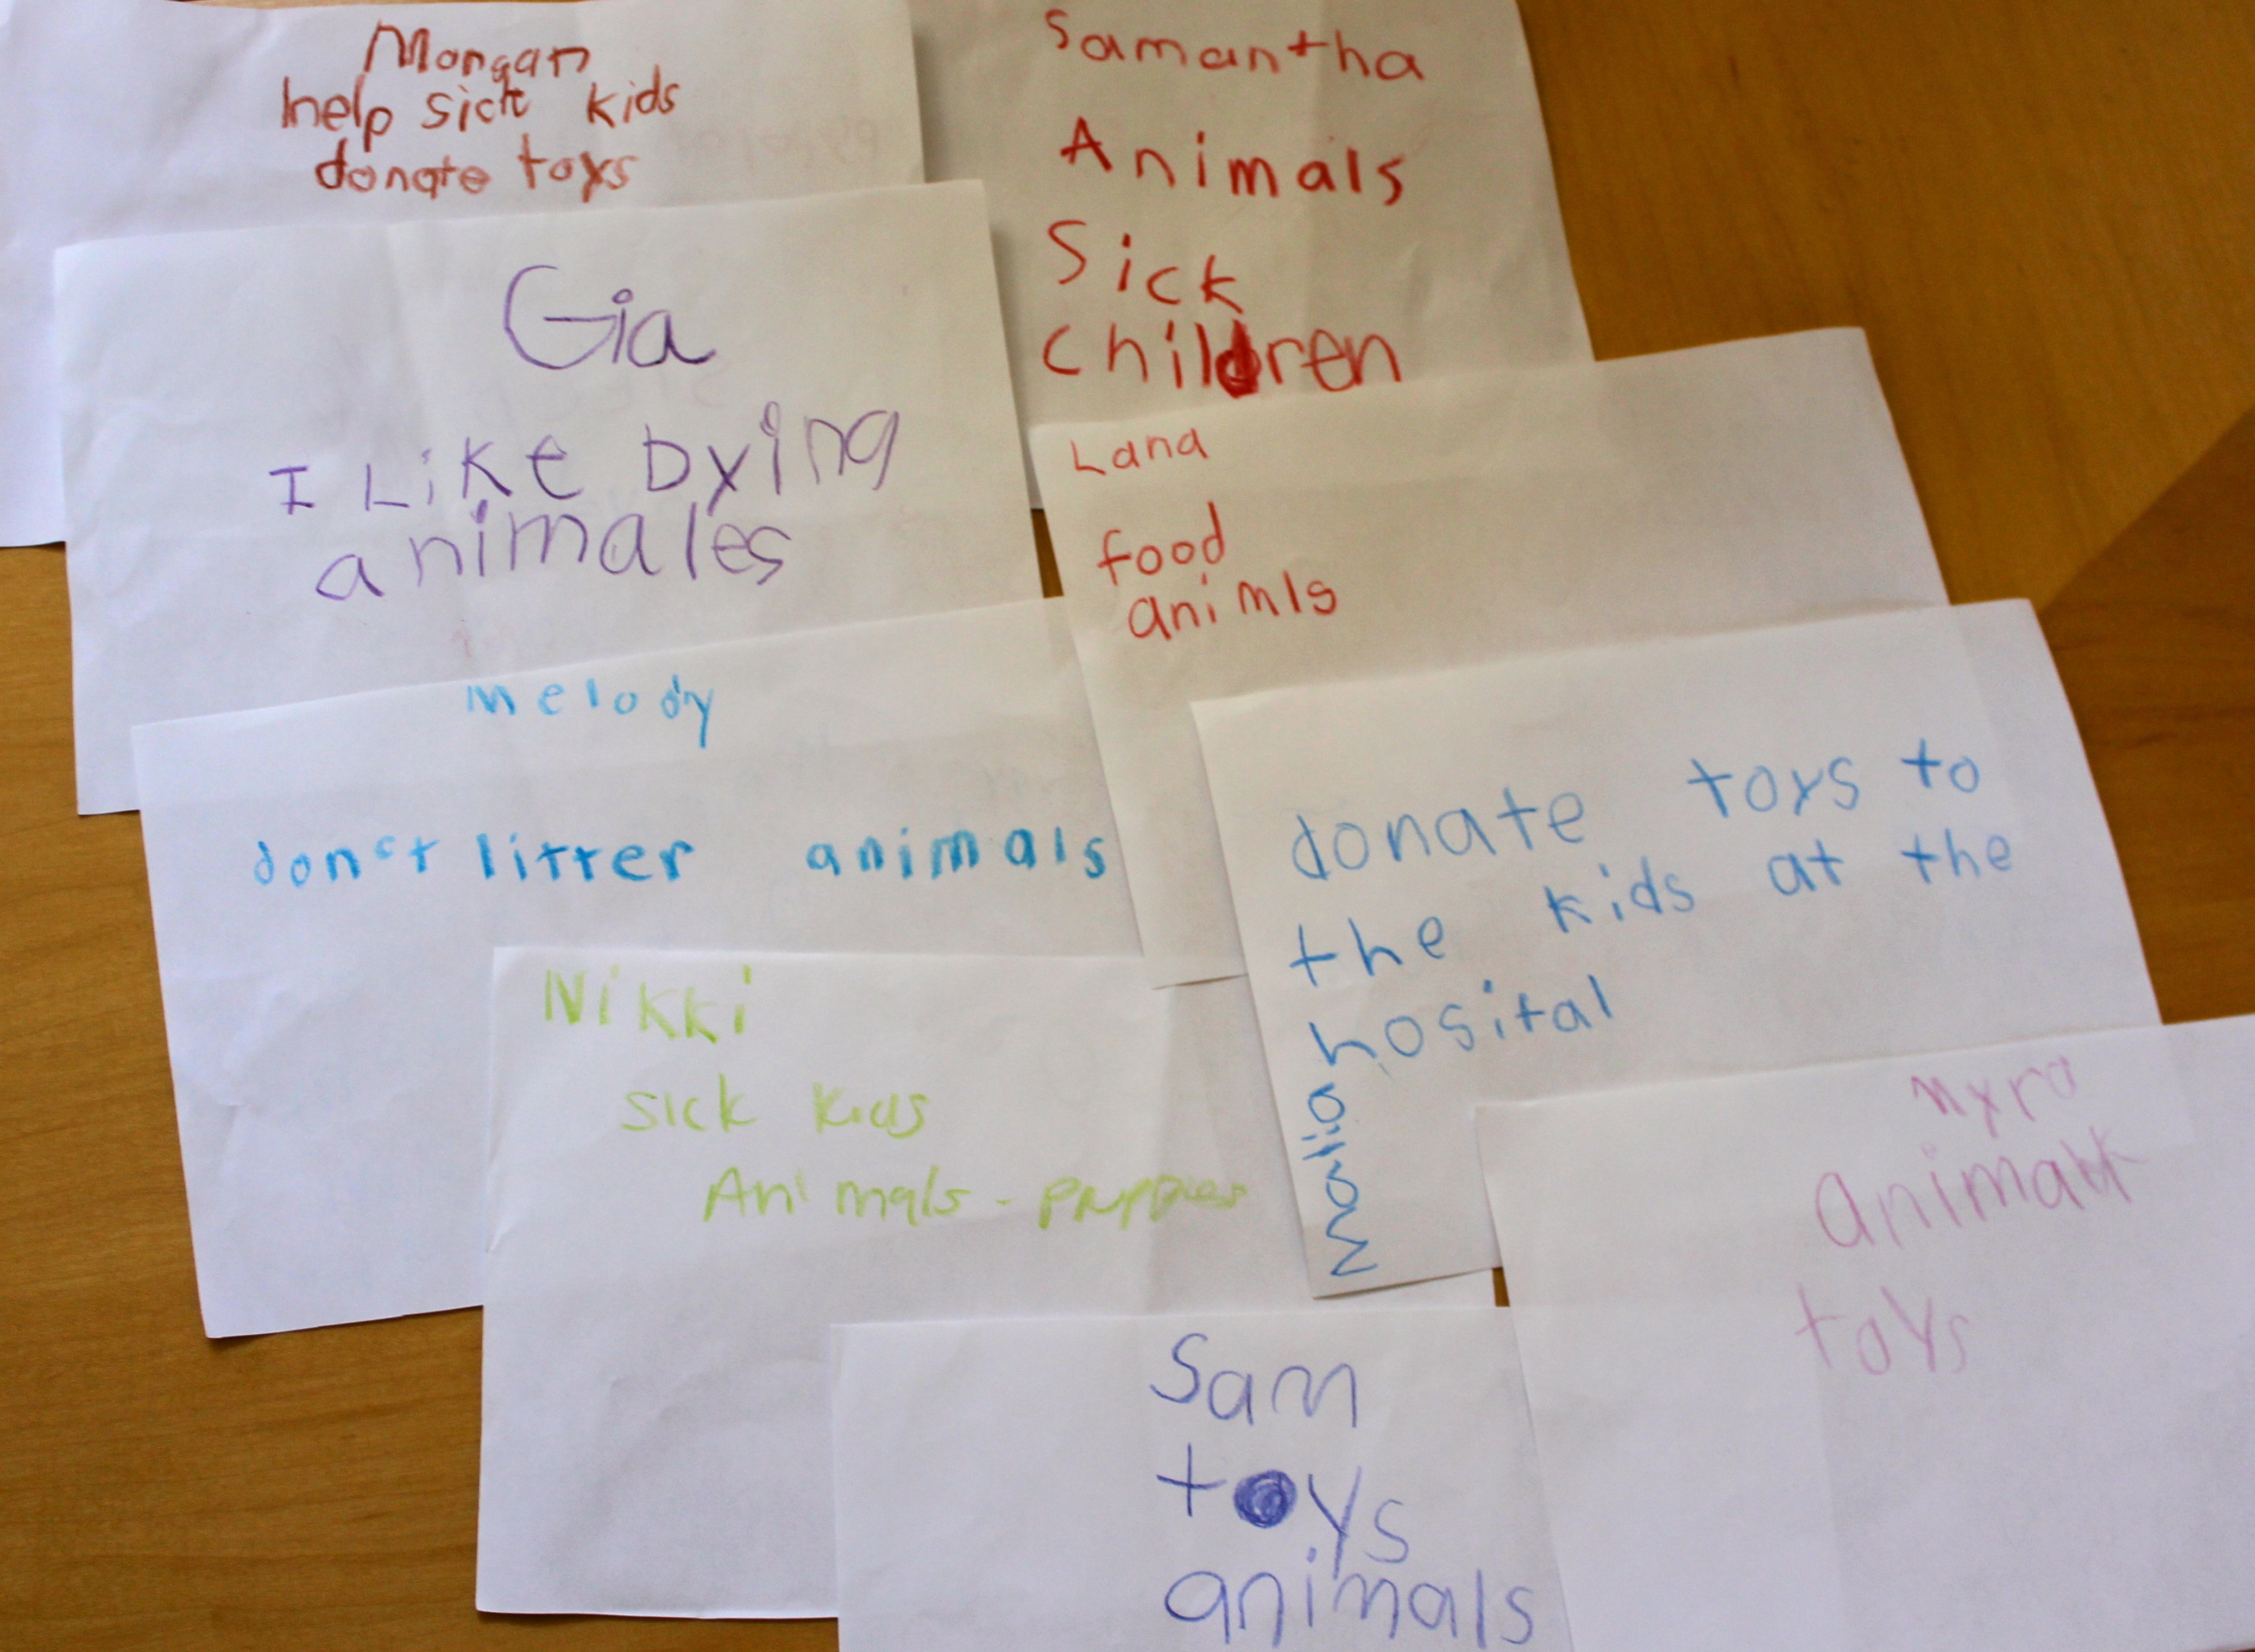 Morgan
help sick kids
donate toys
Samantha
Animals
Sick
Children
Gia
I Like Dying
animales
Lana
food
animls
Melody
don't litter animals
donate toys to
the kids at the
hosital
Nikki
Sick Kids
Animals - puppies
Myra
animals
toys
Sam
toys
animals